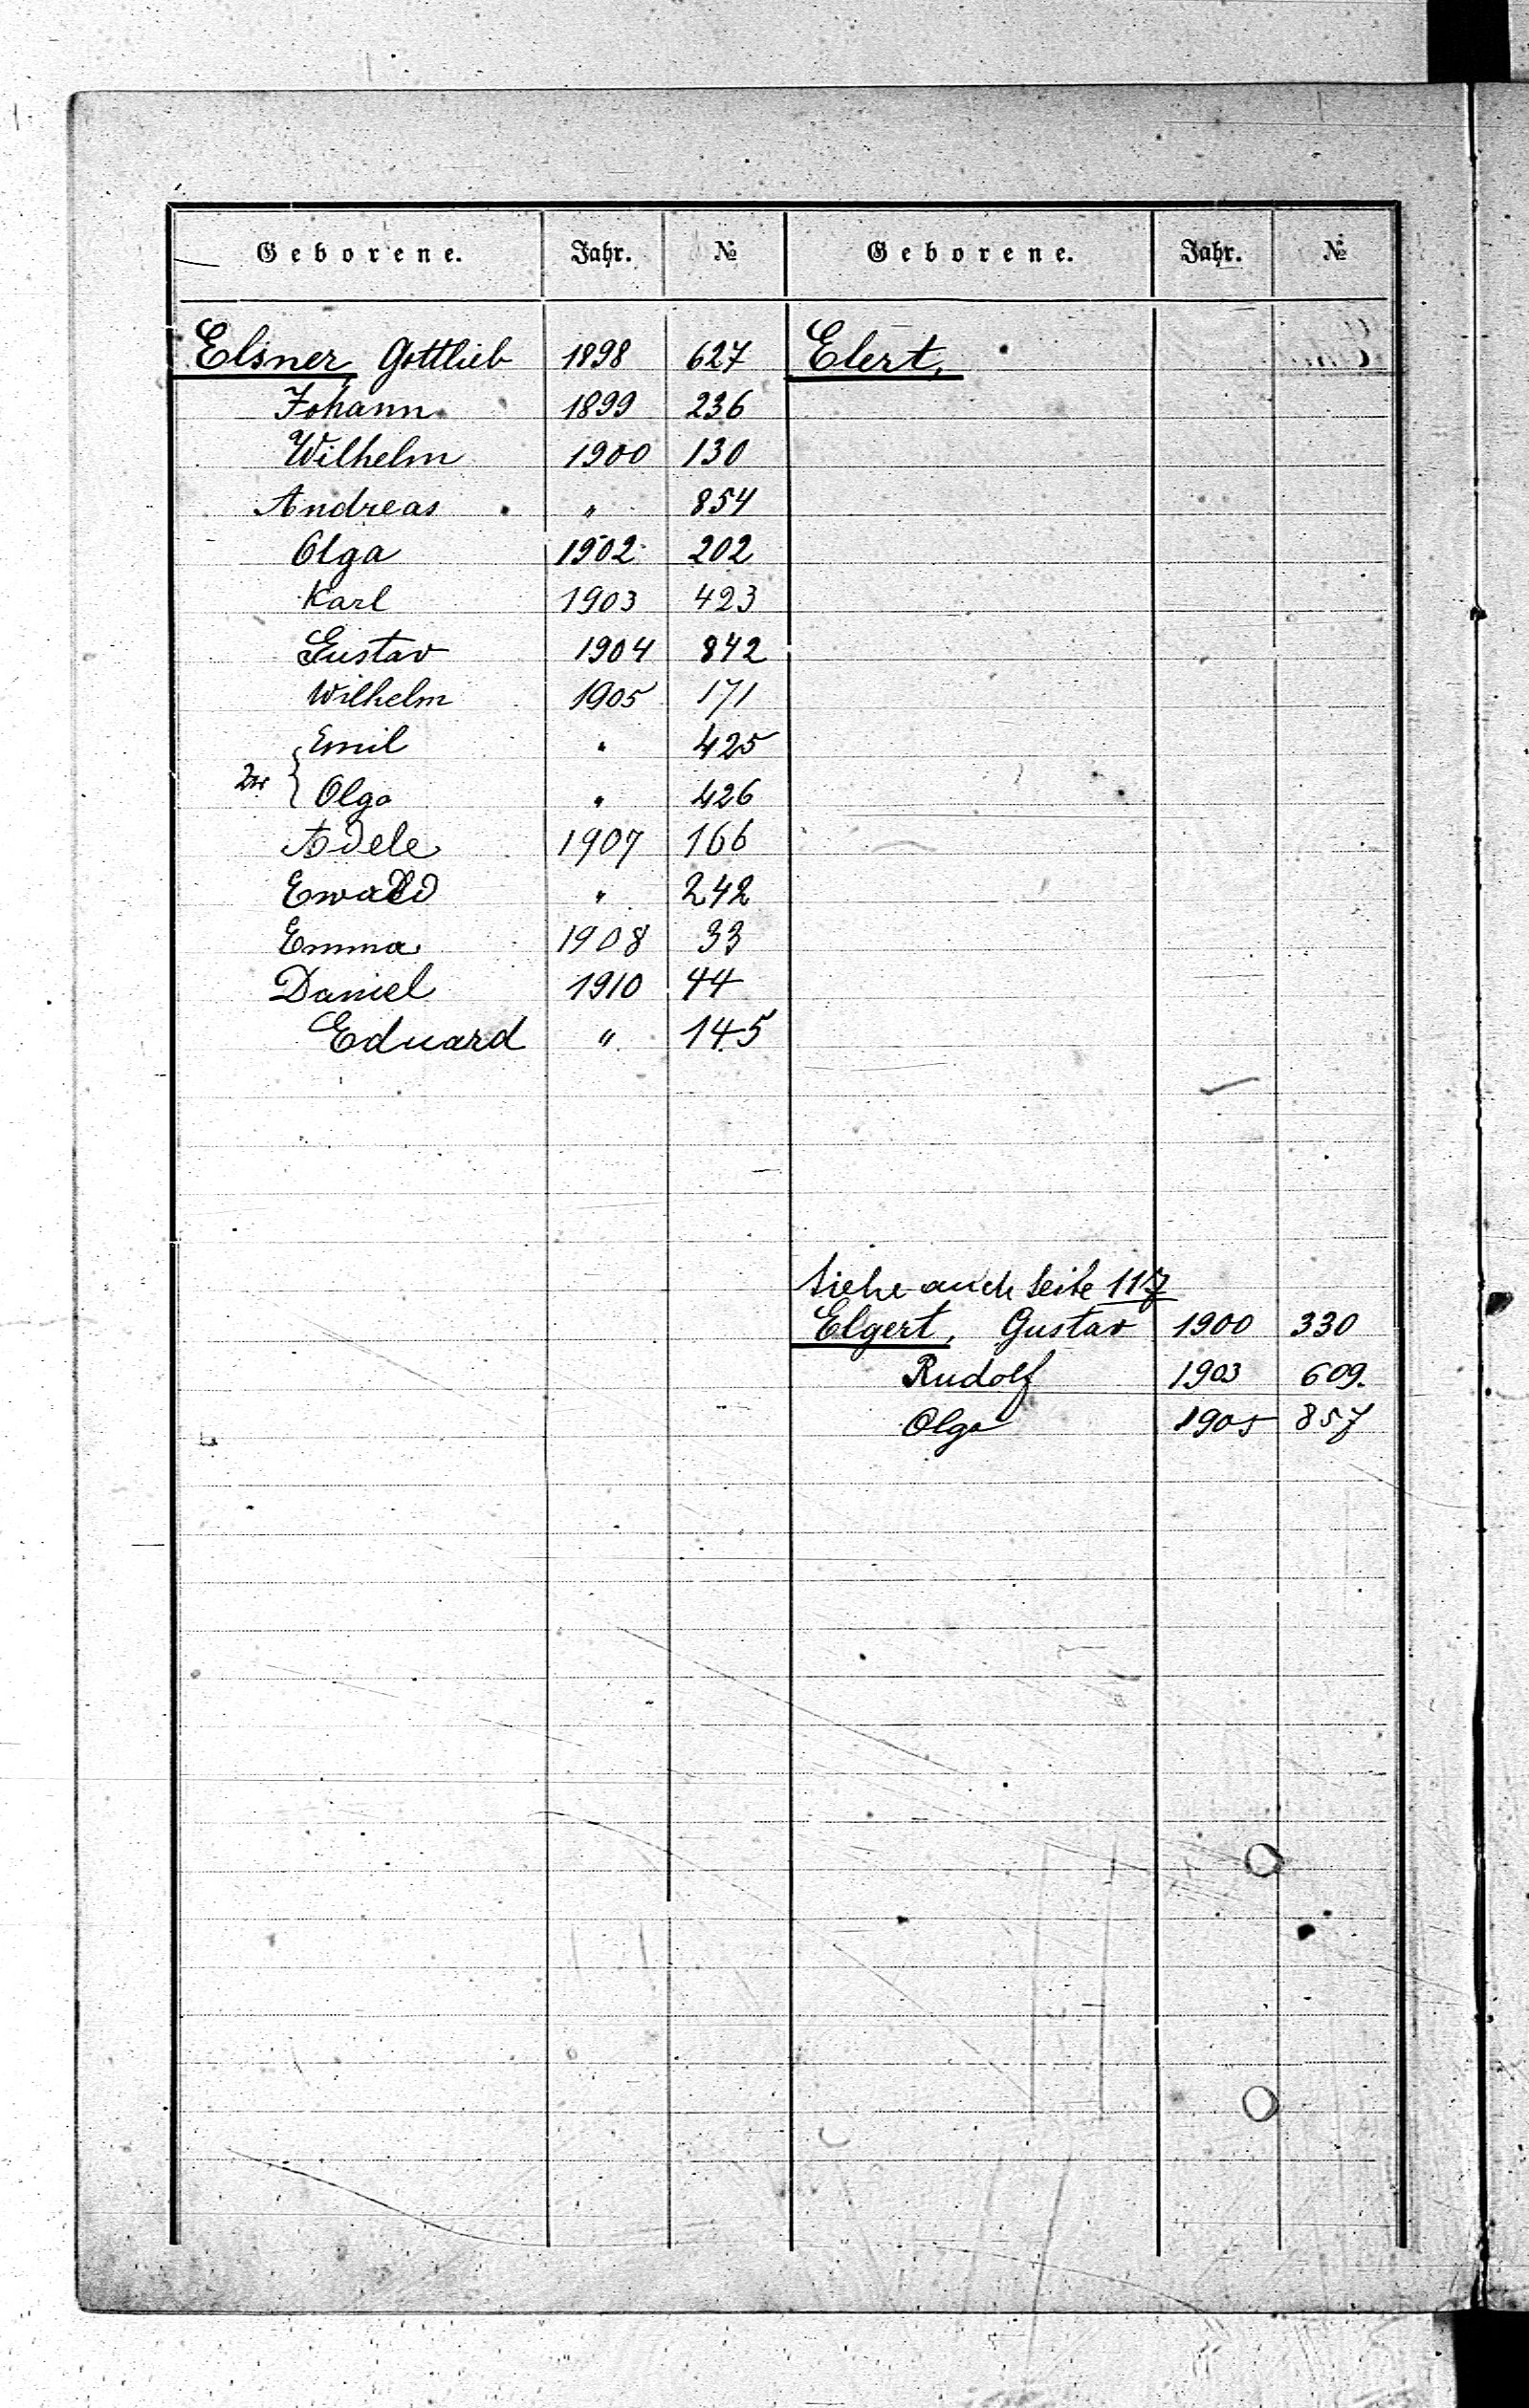 Geborene. Jahr. № Geborene. Jahr. №
Elsner, Gottlieb 1898 627
Johann 1899 236
Wilhelm 1900 130
Andreas " 854
Olga 1902 202
Karl 1903 423
Gustav 1904 842
Wilhelm 1905 171
Emil " 425
Olga " 426
Adele 1907 166
Ewald " 242
Emma 1908 33
Daniel 1910 44
Eduard " 145
Elert,
Siehe auch Seite 117
Elgert, Gustav 1900 330
Rudolf 1903 609.
Olga 1905 857